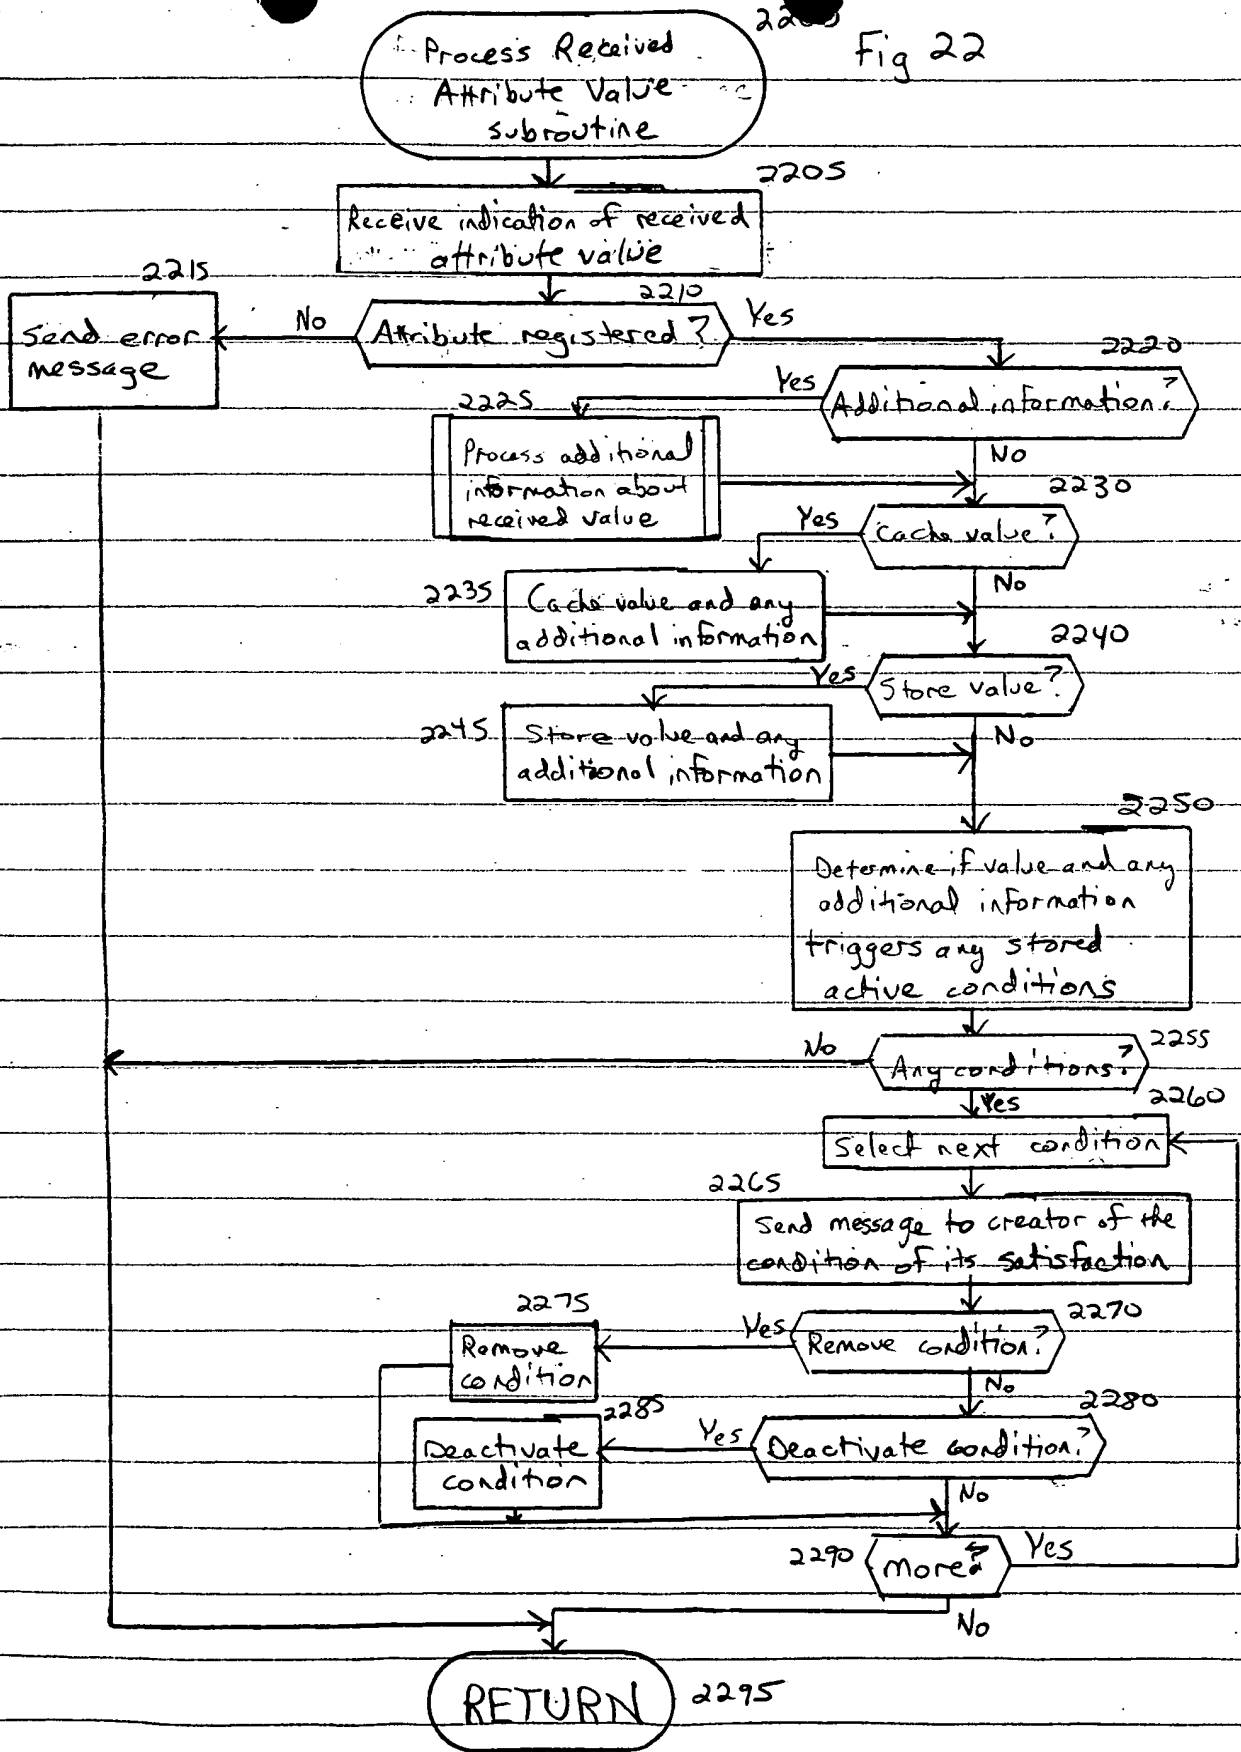 Fig 22
Process Received
Attribute Value
subroutine
2205
Receive indication of received
attribute value
2215
Send error
message
No
2210
Attribute registered?
Yes
2220
Additional information?
Yes
No
2225
Process additional
information about
received value
2230
Cache value?
Yes
No
2235
Cache value and any
additional information
2240
Store value?
Yes
No
2245
Store value and any
additional information
2250
Determine if value and any
additional information
triggers any stored
active conditions
2255
Any conditions?
No
Yes
2260
Select next condition
2265
Send message to creator of the
condition of its satisfaction
2270
Remove condition?
Yes
No
2275
Remove
condition
2280
Deactivate condition?
Yes
No
2285
Deactivate
condition
2290
More?
Yes
No
RETURN
2295